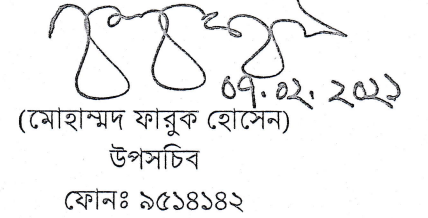 ০৭.০২.২০২১
(মোহাম্মদ ফারুক হোসেন)
উপসচিব
ফোনঃ ৯৫১৪১৪২